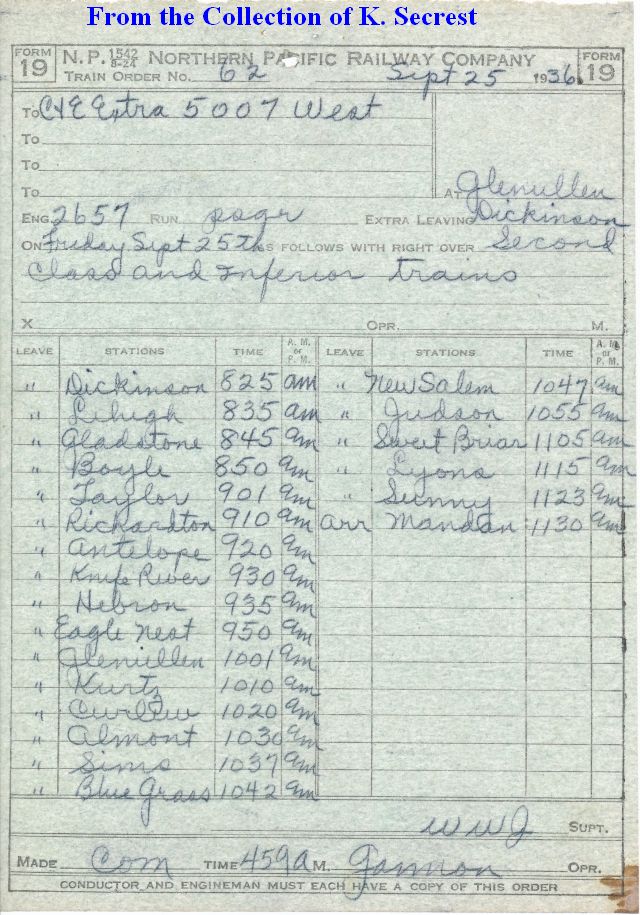 From the Collection of K. Secrest
FORM 19 N.P. 1542 8-24 NORTHERN PACIFIC RAILWAY COMPANY FORM 19
TRAIN ORDER NO. 62 Sept 25 1936
To C&E Extra 5007 West
To
To
To
AT Glenullen
ENG. 2657 RUN psgr EXTRA LEAVING Dickinson
ON Friday Sept 25th AS FOLLOWS WITH RIGHT OVER Second
Class and Inferior trains
X OPR. M.
LEAVE STATIONS TIME A. M. or P. M. LEAVE STATIONS TIME A. M. or P. M.
" Dickinson 825 am " New Salem 1047 am
" Lehigh 835 am " Judson 1055 am
" Gladstone 845 am " Sweet Briar 1105 am
" Boyle 850 am " Lyons 1115 am
" Taylor 901 am " Sunny 1123 am
" Rickardton 910 am arr Mandan 1130 am
" Antelope 920 am
" Knife River 930 am
" Hebron 935 am
" Eagle Nest 950 am
" Glenullen 1001 am
" Kurtz 1010 am
" Curlew 1020 am
" Almont 1030 am
" Sims 1037 am
" Blue Grass 1042 am
WWJ SUPT.
MADE Com TIME 459 A M. Gannon OPR.
CONDUCTOR AND ENGINEMAN MUST EACH HAVE A COPY OF THIS ORDER